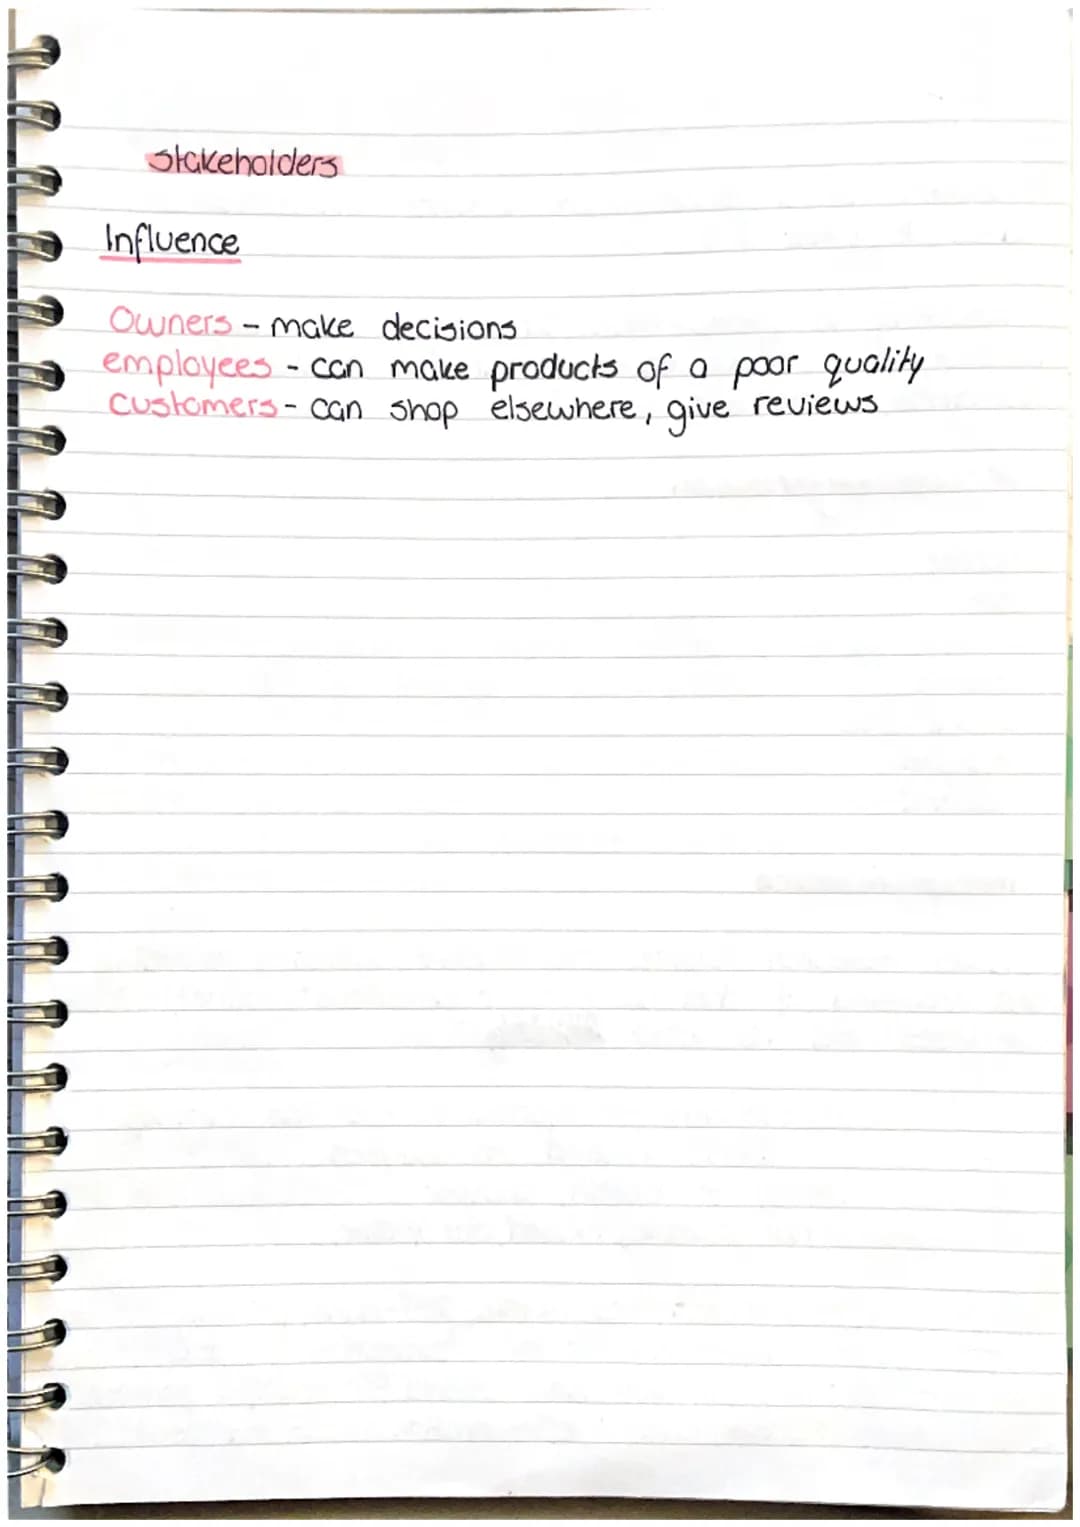 Stakeholders
Influence
Owners - make decisions
employees - can make products of a poor quality
Customers - can shop elsewhere, give reviews